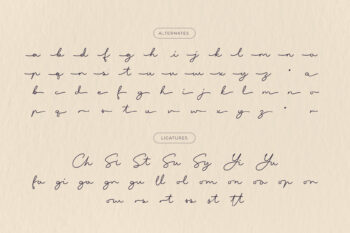 ALTERNATES
a b c d e f g h i j k l m n o
p q r s t u v w x y z a
b c d e f g h i j k l m n o
p q r s t u v w x y z
LIGATURES
Ch Si St Su Sy Yi Yu
fa gi ga gn gu ll ol om on oa op on
ou rs rt os st tt